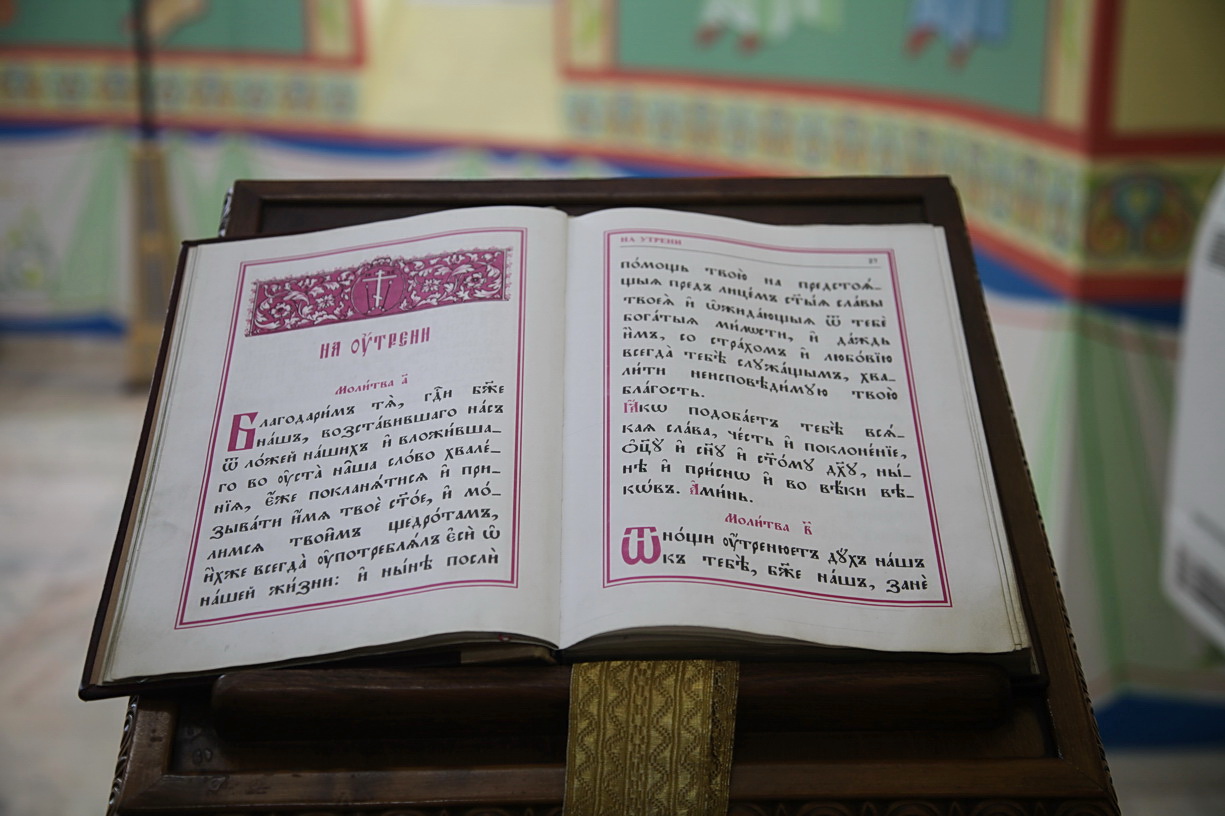 НА ОУ҆́ТРЕНИ
Моли́тва а҃
Благодари́мъ тѧ̀, гдⷭ҇и бж҃е
на́шъ, возста́вившаго на́съ
ѿ ло́жей на́шихъ и҆ вложи́вша-
го во ᲂу҆ста̀ на̑ша сло́во хвале́-
нїѧ, є҆́же покланѧ́тисѧ и҆ при-
зыва́ти и҆́мѧ твоѐ ст҃о́е, и҆ мо́-
лимсѧ твои̑мъ щедро́тамъ,
и҆̀хже всегда̀ ᲂу҆потреблѧ́лъ є҆сѝ ѡ҆
на́шей жи́зни: и҆ ны́нѣ послѝ
НА УТРЕНИ
27
по́мощь твою̀ на предстоѧ́-
щыѧ пред̾ лице́мъ ст҃ы́ѧ сла́вы
твоеѧ̀ и҆ ѡ҆жида́ющыѧ ѿ тебє̀
бога́тыѧ ми́лости, и҆ да́ждь
и҆̀мъ, со стра́хомъ и҆ любо́вїю
всегда̀ тебѣ̀ слꙋжа́щымъ, хва-
ли́ти неисповѣди́мꙋю твою̀
бла́гость.
Ꙗ҆́кѡ подоба́етъ тебѣ̀ всѧ́-
каѧ сла́ва, че́сть и҆ поклоне́нїе,
ѻ҆ц҃ꙋ̀ и҆ сн҃ꙋ и҆ ст҃о́мꙋ дх҃ꙋ, ны́-
нѣ и҆ при́снѡ и҆ во вѣ́ки вѣ-
кѡ́въ. А҆ми́нь.
Моли́тва в҃
Ѿ но́щи ᲂу҆́тренюетъ дꙋ́хъ на́шъ
къ тебѣ̀, бж҃е на́шъ, занѐ